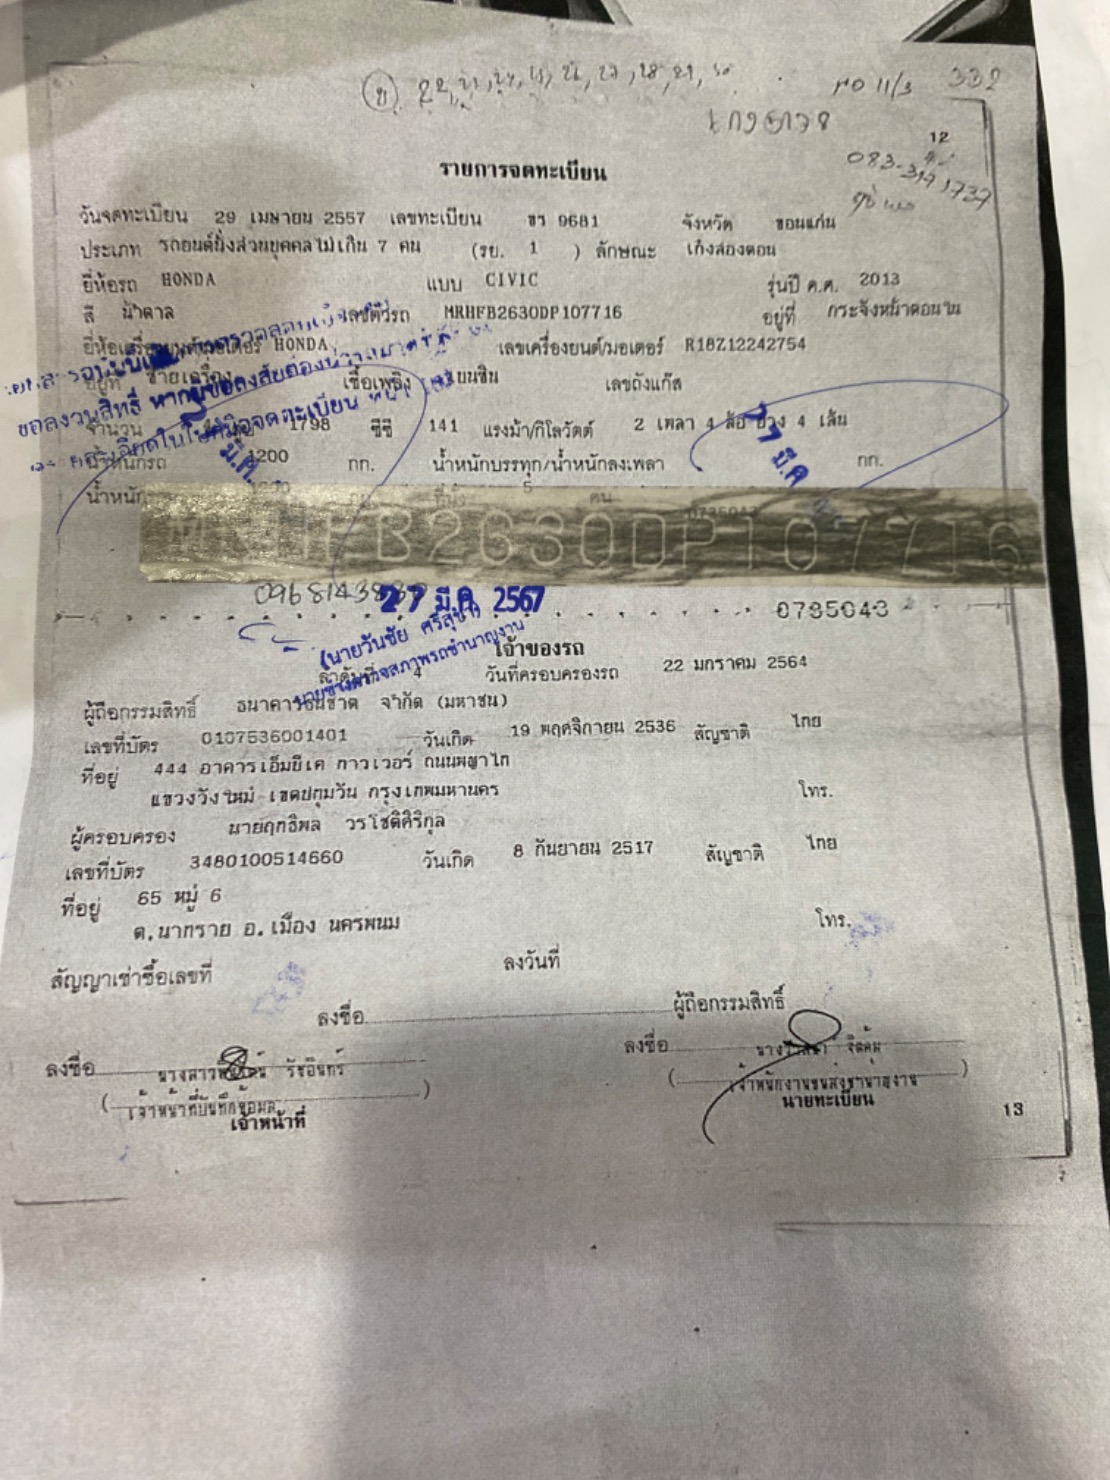 332
083-3191737
12
รายการจดทะเบียน
วันจดทะเบียน 29 เมษายน 2557 เลขทะเบียน ขร 9681 จังหวัด ขอนแก่น
ประเภท รถยนต์นั่งส่วนบุคคลไม่เกิน 7 คน (รย. 1 ) ลักษณะ เก๋งสองตอน
ยี่ห้อรถ HONDA แบบ CIVIC รุ่นปี ค.ศ. 2013
สี น้ำตาล เลขตัวรถ MRHFB2630DP107716 อยู่ที่ กระจังหน้าตอนใน
ยี่ห้อเครื่องยนต์/มอเตอร์ HONDA เลขเครื่องยนต์/มอเตอร์ R18Z12242754
อยู่ที่ ซ้ายเครื่อง เชื้อเพลิง เบนซิน เลขถังแก๊ส
จำนวน 1798 ซีซี 141 แรงม้า/กิโลวัตต์ 2 เพลา 4 ล้อ ยาง 4 เส้น
น้ำหนักรถ 1200 กก. น้ำหนักบรรทุก/น้ำหนักลงเพลา กก.
น้ำหนัก ที่นั่ง 5 คน
0735043
MRHFB2630DP107716
27 มี.ค. 2567
0735043
(นายวันชัย ศรีสุชา)
นายช่างตรวจสภาพรถชำนาญงาน
เจ้าของรถ
ลำดับที่ 4 วันที่ครอบครองรถ 22 มกราคม 2564
ผู้ถือกรรมสิทธิ์ ธนาคารธนชาต จำกัด (มหาชน)
เลขที่บัตร 0107536001401 วันเกิด 19 พฤศจิกายน 2536 สัญชาติ ไทย
ที่อยู่ 444 อาคารเอ็มบีเค ทาวเวอร์ ถนนพญาไท
แขวงวังใหม่ เขตปทุมวัน กรุงเทพมหานคร โทร.
ผู้ครอบครอง นายฤทธิพล วรโชติศิริกุล
เลขที่บัตร 3480100514660 วันเกิด 8 กันยายน 2517 สัญชาติ ไทย
ที่อยู่ 65 หมู่ 6
ต.นาทราย อ.เมือง นครพนม โทร.
สัญญาเช่าซื้อเลขที่ ลงวันที่
ลงชื่อ ผู้ถือกรรมสิทธิ์
ลงชื่อ นางสาว รัชอินทร์ ลงชื่อ จิตคุ้ม
(เจ้าหน้าที่บันทึกข้อมูล) (เจ้าพนักงานขนส่งชำนาญงาน)
เจ้าหน้าที่ นายทะเบียน
13